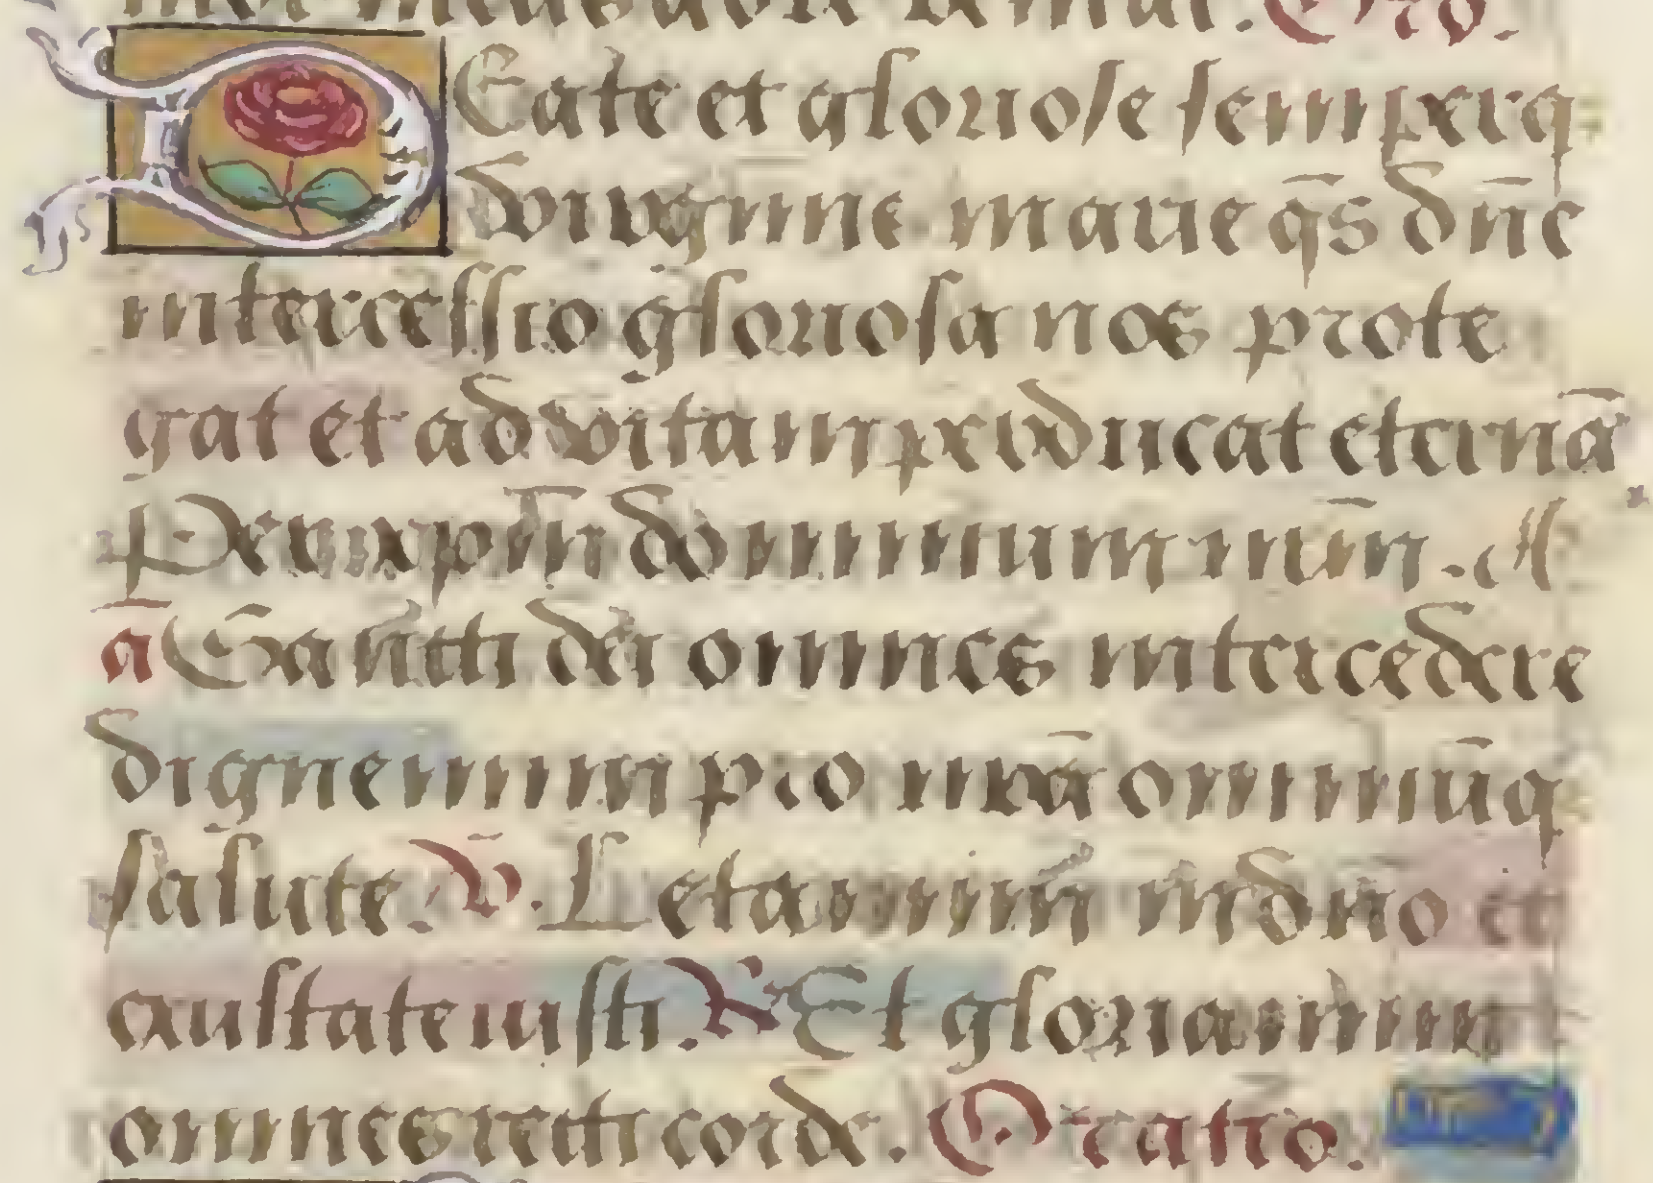 Oro.
BEate et gloriose semperq
virginis marie q̄s dn̄e
intercessio gloriosa nos prote
gat et ad vitam perducat eternā
Per xp̄m dominum nr̄m. A
ā Sancti dei omnes intercedere
dignemini pro nr̄a omniūq
salute. V̄. Letamini in dn̄o et
exultate iusti. R Et gloriamini
omnes recti corde. Oratio.